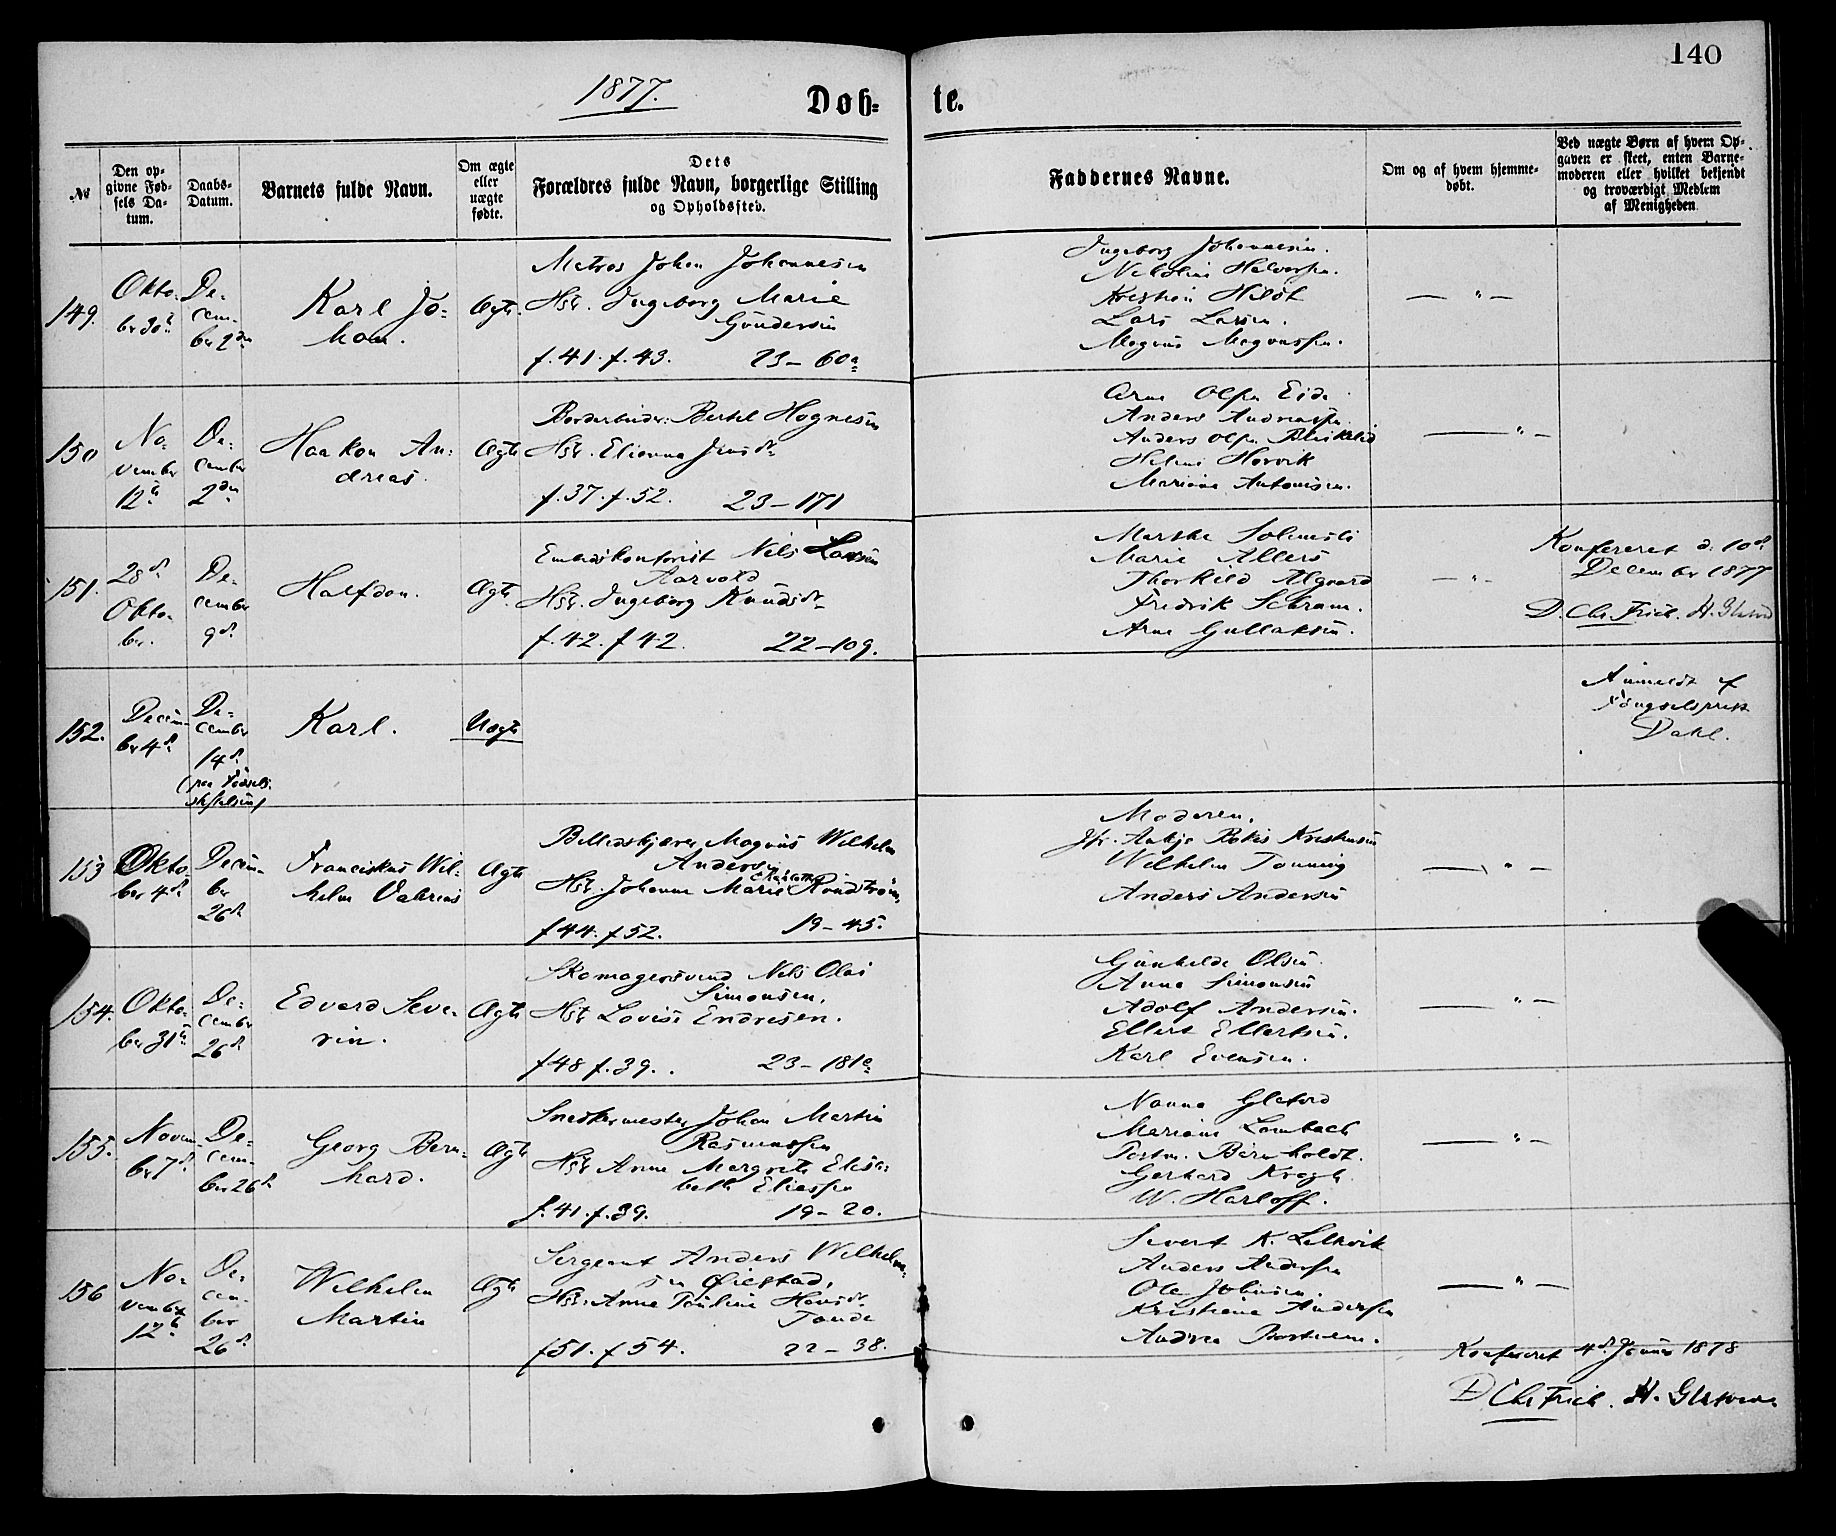 140
1877.
Døb-
te.
№
Den op-
givne Fød-
sels Da-
tum.
Daabs-
Datum.
Barnets fulde Navn.
Om ægte
eller
uægte
fødte.
Dets
Forældres fulde Navn, borgerlige Stilling
og Opholdssted.
Faddernes Navne.
Om og af hvem hjemme-
døbt.
Ved uægte Børn af hvem Op-
gaven er skeet, enten Barne-
moderen eller hvilket bekjendt
og troværdigt Medlem
af Menigheden
149.
Okto-
ber 30te
De-
cem-
ber 2den
Karl Jo-
han.
Ægte.
Matros Johan Johannesen
Hst. Ingeborg Marie
Gundersen
f. 41. f. 43. 23 – 60a
Ingeborg Johannesen.
Nikoline Halvorsen.
Kristian Hildt
Lars Larsen.
Magnus Magnussen.
– " –
150
No-
vember
12te
De-
cember
2den
Haakon An-
dreas.
Ægte
Bertel Hognesen
Hst. Elianna Jensdr
f. 37. f. 52. 23 – 171
Arne Olsen Eide
Anders Andreassen
Anders Olsen
Helene Horvik
Mariane Antonisen.
– " –
151.
28de
Okto-
ber.
De-
cember
9de
Halfdan.
Ægte.
Embedskontorist Nils Larsen
Aarvold
Hst. Ingeborg Knudsdr
f. 42. f 42. 22 – 109.
Marthe
Marie Allers
Thorkild Algaard
Fredrik Schram.
Arne Gullaksen.
– " –
Konfereret d. 10de
December 1877
D. Chr. Frich. H. Glatved
152.
Decem-
ber 4de
De-
cember
14de
(paa Fødsels-
stiftelsen)
Karl.
Uægte
Anmeldt af
Fængselsprest
Dahl.
153
Okto-
ber 4de
Decem-
ber
26de
Franciskus Wil-
helm Valerius
Ægte
Billedskjærer Magnus Wilhelm
Andersen
Charlotte
Hst. Johanne Marie Rundström,
f 44. f 52. 19 – 45.
Moderen.
Jfr. Antje Kristensen
Wilhelm Tonning
Anders Andersen
– " –
154.
Okto-
ber 31te
De-
cember
26de
Edvard Seve-
rin.
Ægte
Skomagersvend Nils Olai
Simonsen,
Hst. Lovise Endresen.
f 48 f. 39. 23 – 181c
Gunhilde Olsen.
Anna Simonsen
Adolf Andersen.
Ellert Ellertsen.
Karl Evensen.
– " –
155.
Novem-
ber 7de
De-
cem-
ber 26de
Georg Bern-
hard.
Ægte
Snedkermester Johan Martin
Rasmussen
Hst. Anne Margrete Elisa-
beth Eliassen
f. 41. f. 39. 19 – 20.
Nanna Glatved
Mariane Lambach
Bernholdt.
Gerhard Kragh
W. Harloff.
– " –
156
No-
vember
12te
De-
cem-
ber
26de
Wilhelm
Martin
Ægte
Sergeant Anders Wilhelm-
sen Øiestad,
Hst. Anne Pauline Hansdr
Tonde
f 51. f 54. 22 – 38.
Sivert K. Lekvik
Anders Andersen
Ole Johnsen.
Kristiane Andersen
Andrea
– " –
Konfereret 4de Januar 1878
D Chr Frich. H. Glatved